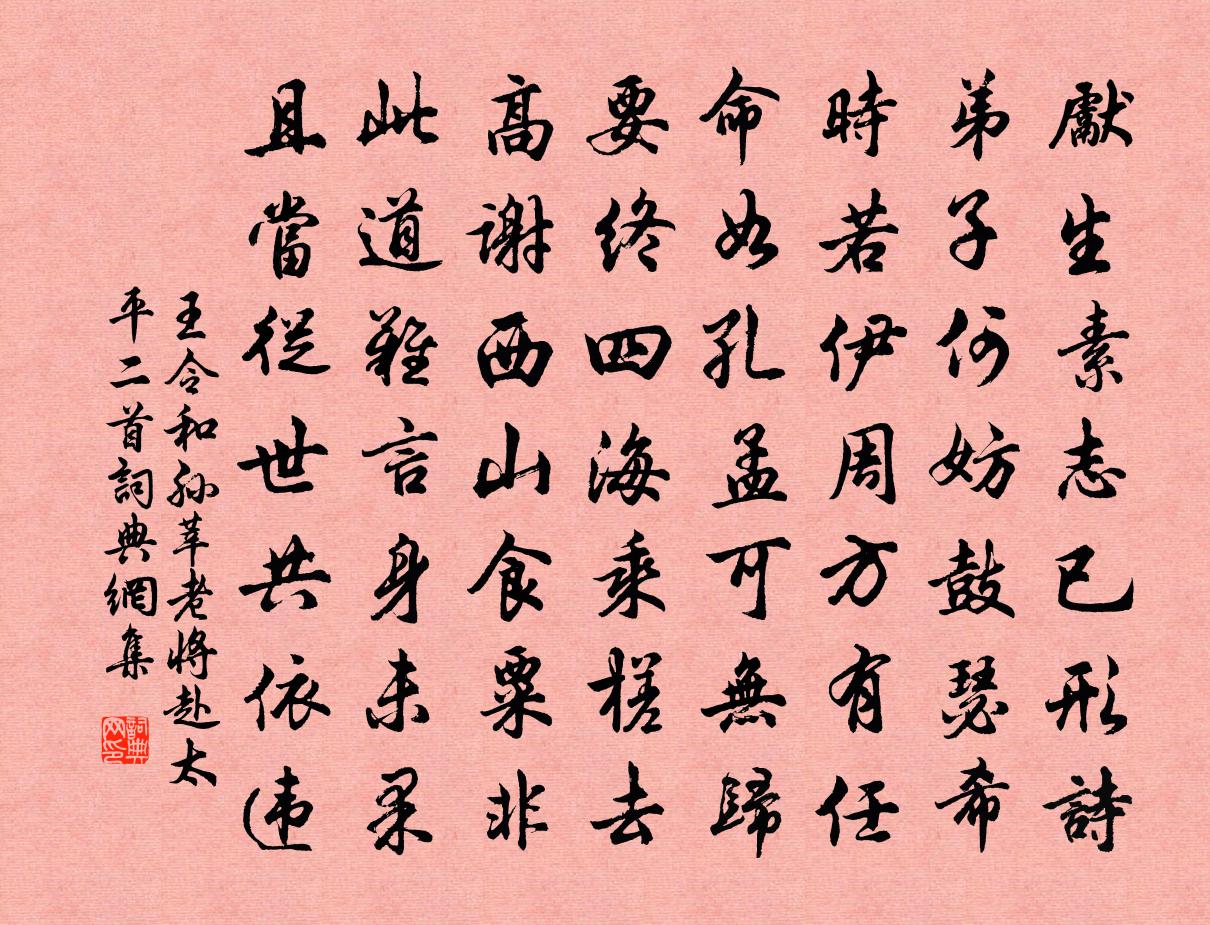 獻生素志已形詩
弟子何妨鼓瑟希
時若伊周方有任
命如孔孟可無歸
要終四海乘槎去
高謝西山食粟非
此道難言身未果
且當從世共依違
王令和孫莘老將赴太
平二首詞典網集
詞典
网印